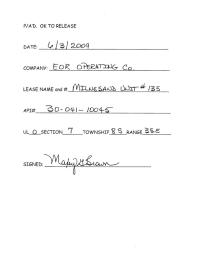 P/A'D. OK TO RELEASE
DATE: 6/3/2009
COMPANY: EOR OPERATING Co.
LEASE NAME and #: MILNESAND UNIT # 135
API#: 30-041-10045
UL O SECTION 7 TOWNSHIP 8 S RANGE 35E
SIGNED: